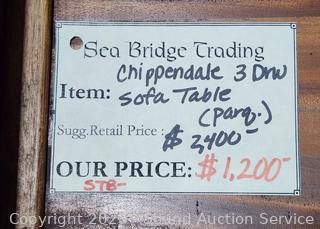 Sea Bridge Trading
Chippendale 3 Drw
Item: Sofa Table
(parq.)
Sugg.Retail Price: $2,400-
OUR PRICE: $1,200-
STB-
Sound Auction Service